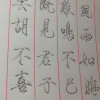 風雨如晦
雞鳴不已
既見君子
云胡不喜